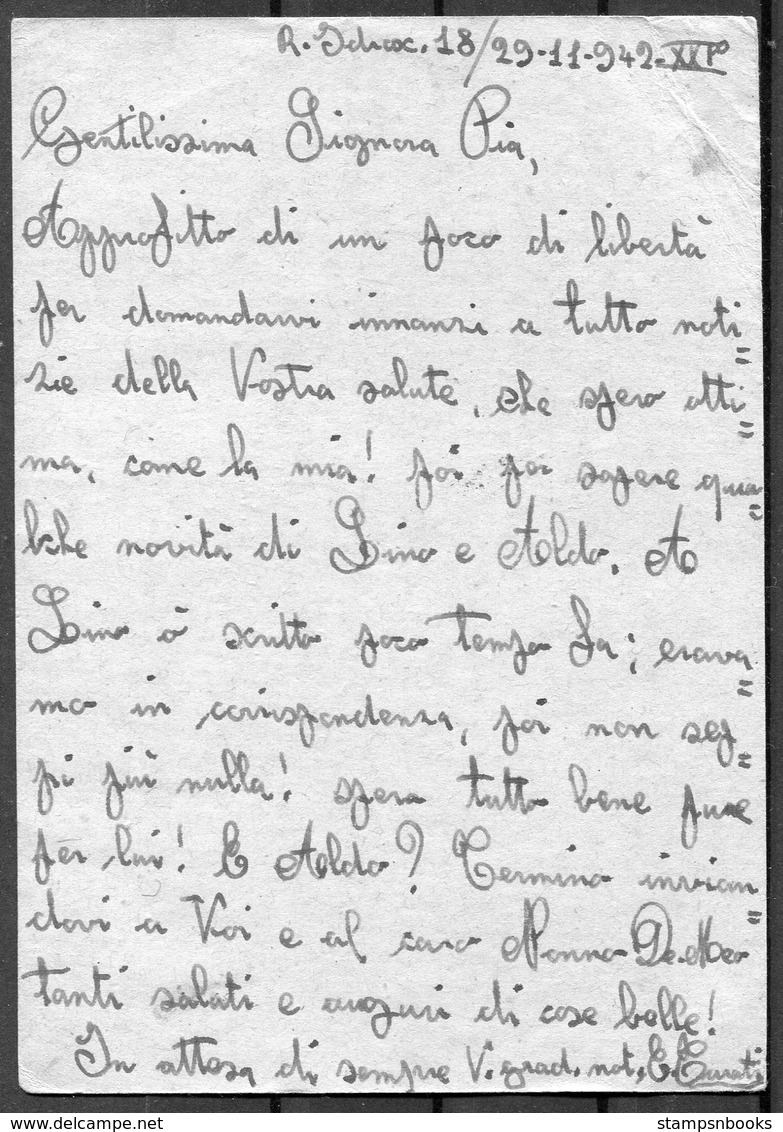 18/29-11-942-XXI°
Gentilissima Signora Pia,
Approfitto di un poco di libertà
per domandarvi innanzi a tutto noti=
zie della Vostra salute, che spero otti=
ma, come la mia! poi per sapere qua=
lche novità di Lino e Aldo. A
Lino ò scritto poco tempo fa; erava=
mo in corrispondenza, poi non sep=
pi più nulla! spero tutto bene pure
per lui! E Aldo? Termino invian=
dovi a Voi e al caro Nonno
tanti saluti e auguri di cose belle!
In attesa di sempre V. grad. not., E.
stampsnbooks